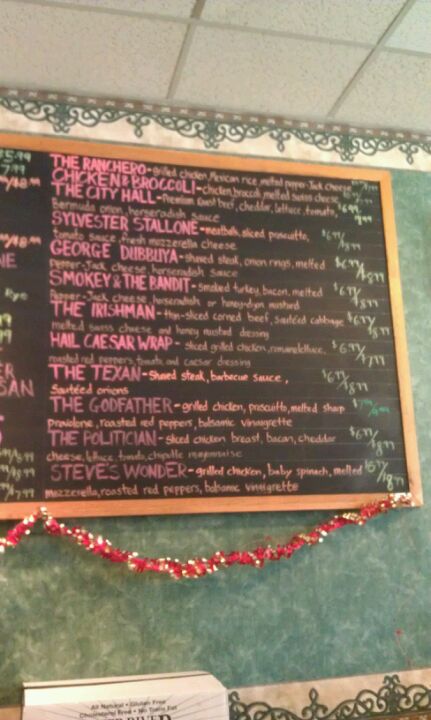 THE RANCHERO-grilled chicken, Mexican rice, melted pepper-Jack cheese
CHICKEN & BROCCOLI-chicken, broccoli, melted swiss cheese
THE CITY HALL-Premium roast beef, cheddar, lettuce, tomato, $6.99
Bermuda onion, horseradish sauce
SYLVESTER STALLONE-meatball, sliced prosciutto, $6.99/8.99
tomato sauce, fresh mozzerella cheese
GEORGE DUBBUYA-shaved steak, onion rings, melted $6.99/8.99
Pepper-Jack cheese, horseradish sauce
SMOKEY & THE BANDIT-smoked turkey, bacon, melted $6.99/8.99
Pepper-Jack cheese, horseradish or honey-dijon mustard
THE IRISHMAN-thin-sliced corned beef, sautéed cabbage $6.99/8.99
melted swiss cheese and honey mustard dressing
HAIL CAESAR WRAP- sliced grilled chicken, romaine lettuce, $6.99/7.99
roasted red peppers, tomato, and caesar dressing
THE TEXAN-Shaved steak, barbecue sauce, $6.99/8.99
Sautéed onions
THE GODFATHER-grilled chicken, prosciutto, melted sharp
Provolone, roasted red peppers, balsamic vinaigrette
THE POLITICIAN-sliced chicken breast, bacon, cheddar $6.99/8.99
cheese, lettuce, tomato, chipotle mayonnaise
STEVE'S WONDER-grilled chicken, baby spinach, melted
mozzerella, roasted red peppers, balsamic vinaigrette
All Natural • Gluten Free
Cholesterol Free • No Trans Fat